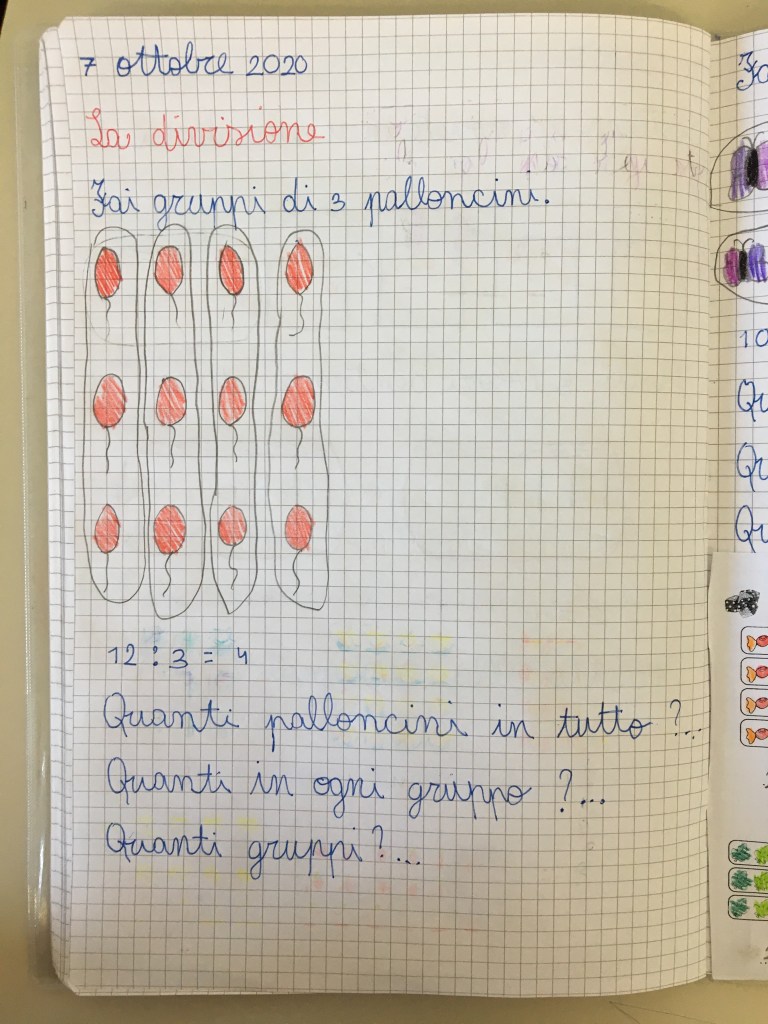 7 ottobre 2020
La divisione
Fai gruppi di 3 palloncini.
12 : 3 = 4
Quanti palloncini in tutto ?...
Quanti in ogni gruppo ?...
Quanti gruppi?...
10